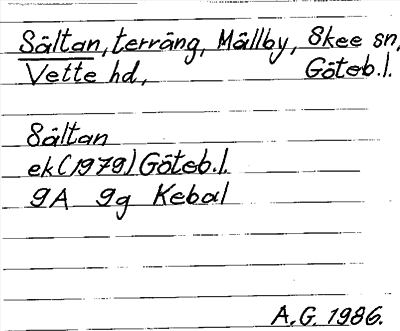 Sältan, terräng, Mällby, Skee sn,
Vette hd, Göteb.l.
Sältan
ek (1979) Göteb.l.
9A 9g Kebal
A.G. 1986.